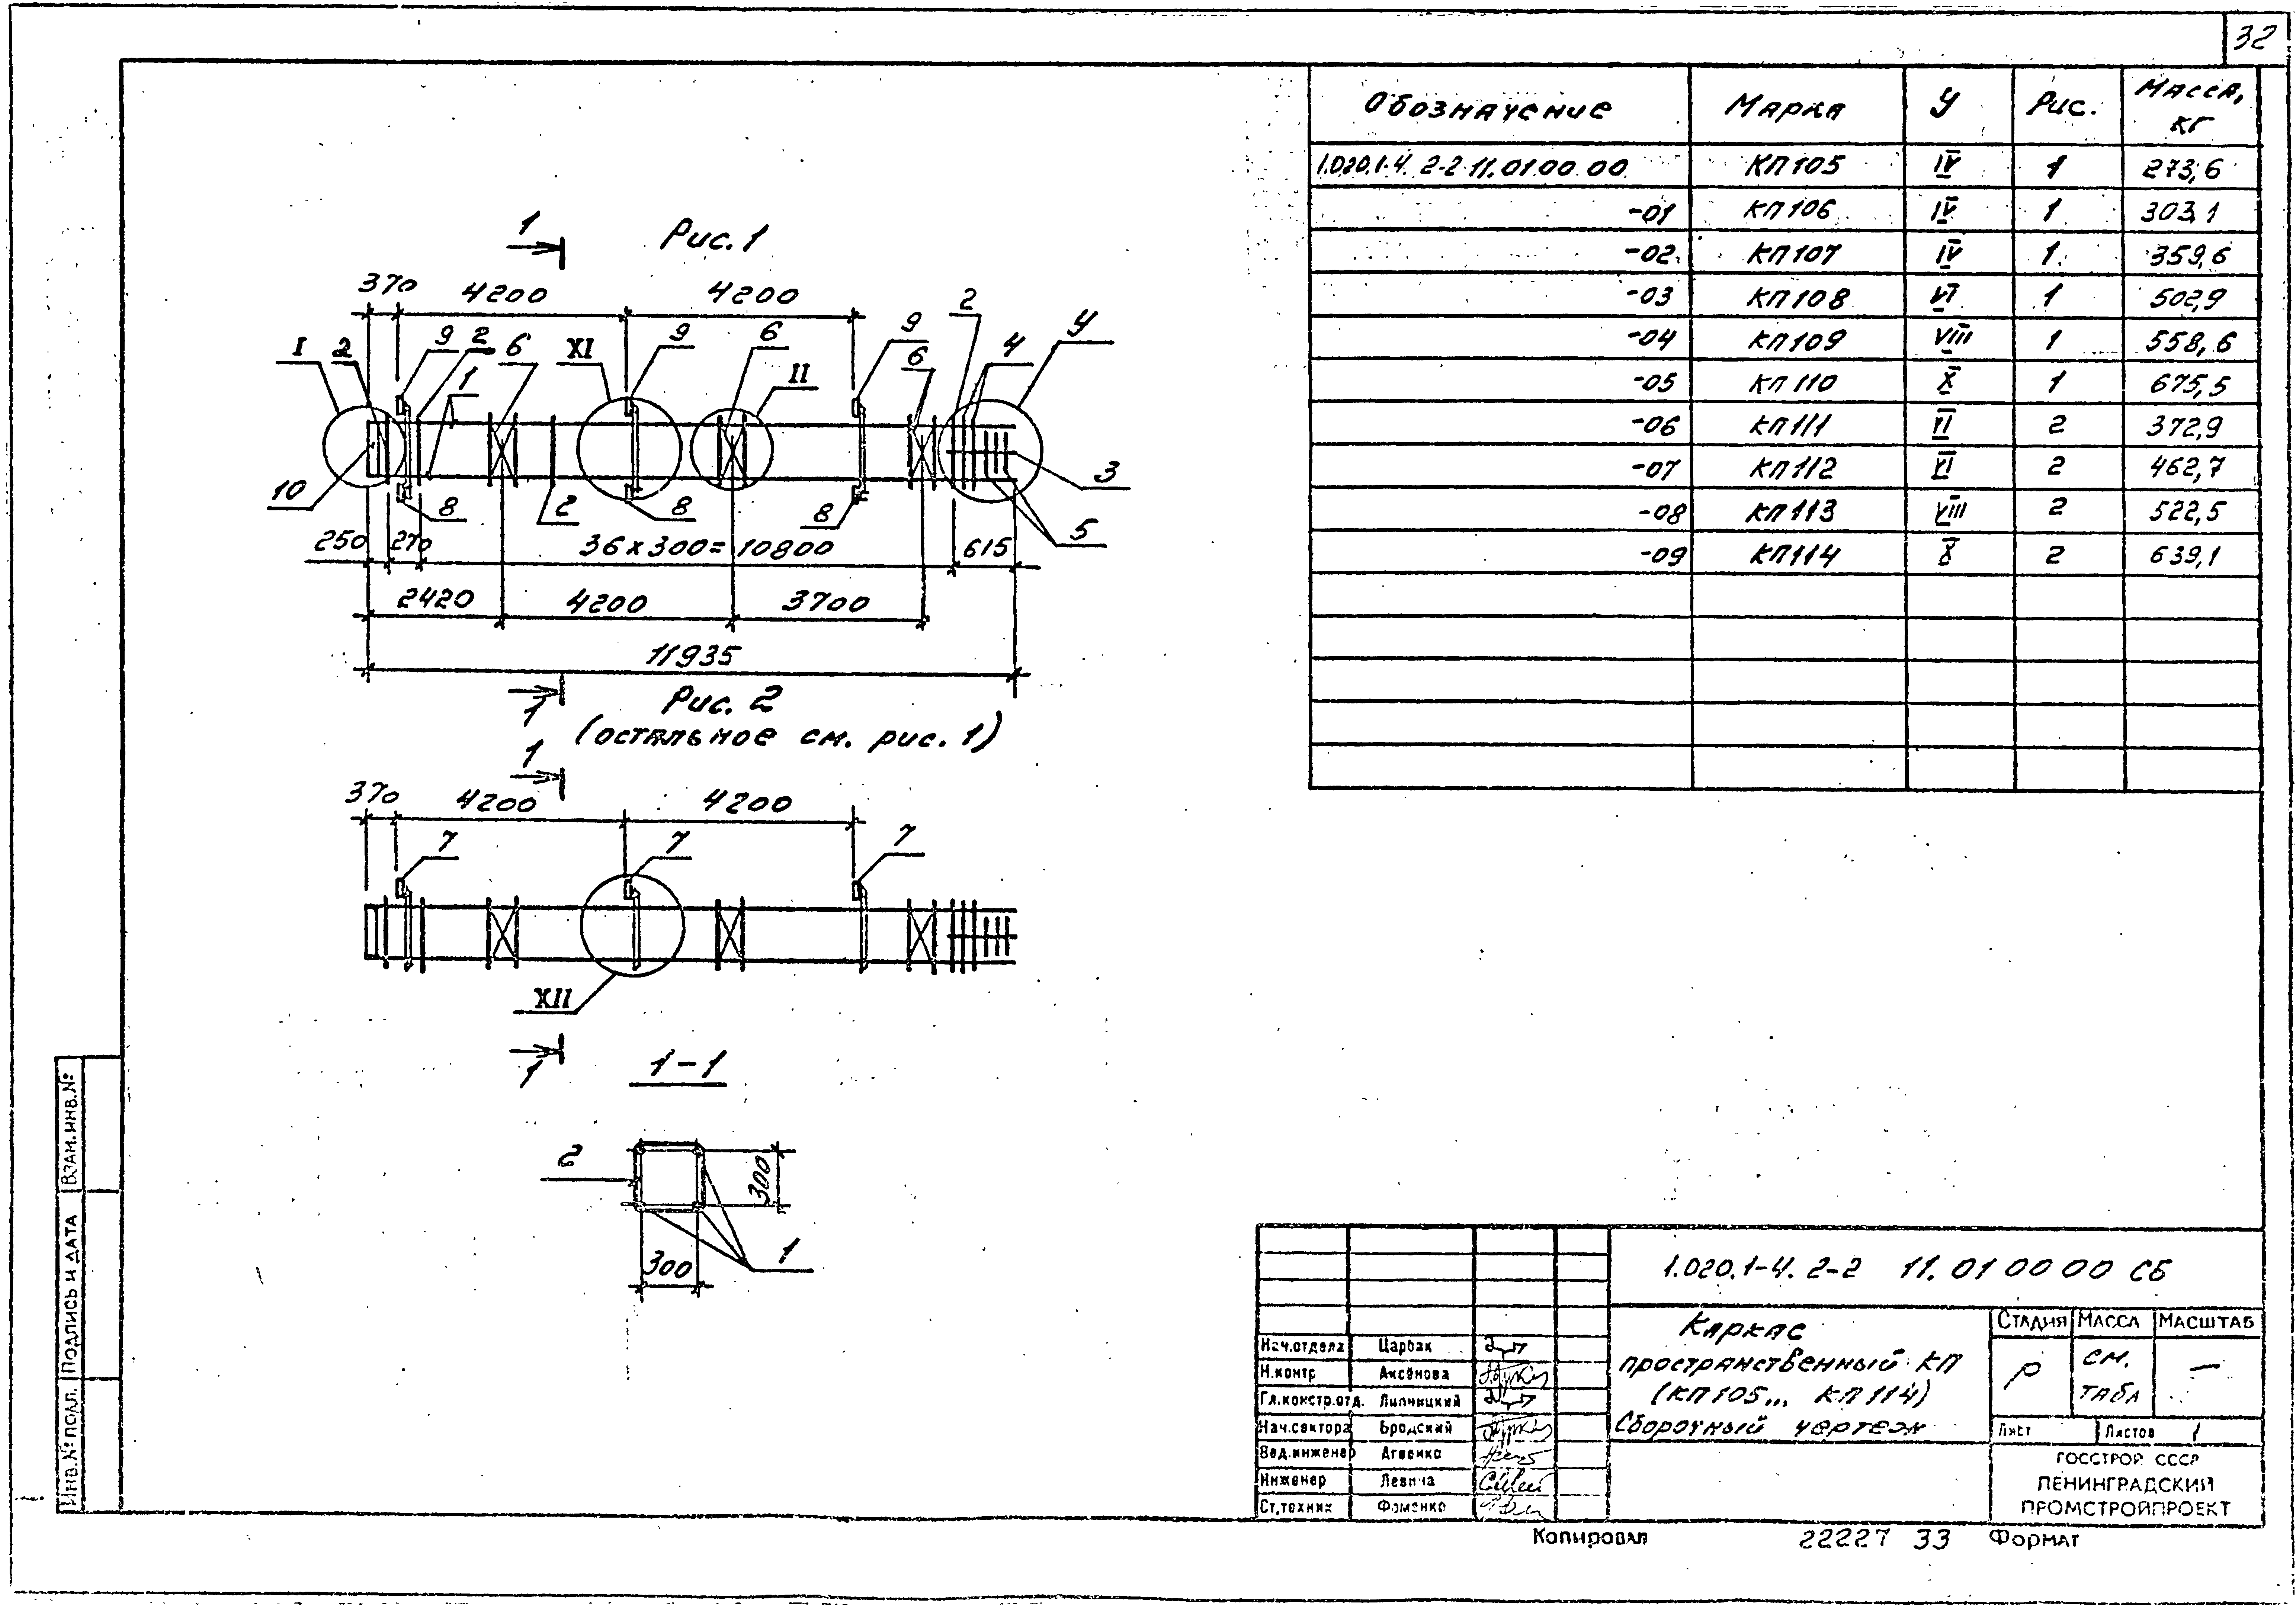 32
Обозначение Марка У Рис. Масса, кг
1.020.1-4. 2-2 11.01 00 00 КП105 IV 1 273,6
-01 КП106 IV 1 303,1
-02 КП107 IV 1 359,6
-03 КП108 VI 1 502,9
-04 КП109 VIII 1 558,6
-05 КП110 X 1 675,5
-06 КП111 VI 2 372,9
-07 КП112 VI 2 462,7
-08 КП113 VIII 2 522,5
-09 КП114 X 2 639,1
1
Рис. 1
370 4200 4200
I 2 9 2 1 6 XI 9 6 II 9 6 2 4 У
10 8 2 8 8 3 5
250 270 36×300=10800 615
2420 4200 3700
11935
1
Рис. 2
(остальное см. рис. 1)
1
370 4200 4200
7 7 7
XII
1
1-1
2
300
300
1
1.020.1-4. 2-2 11.01 00 00 СБ
Каркас
пространственный КП
(КП105... КП114)
Сборочный чертеж
Стадия Масса Масштаб
Р см. табл —
Лист Листов 1
ГОССТРОЙ СССР
ЛЕНИНГРАДСКИЙ
ПРОМСТРОЙПРОЕКТ
Нач.отдела Царбак
Н.контр Аксёнова
Гл.констр.отд. Липницкий
Нач.сектора Бродский
Вед.инженер Агеенко
Инженер Левина
Ст.техник Фоменко
Взам.инв.№
Подпись и дата
Инв.№ подл.
Копировал 22227 33 Формат